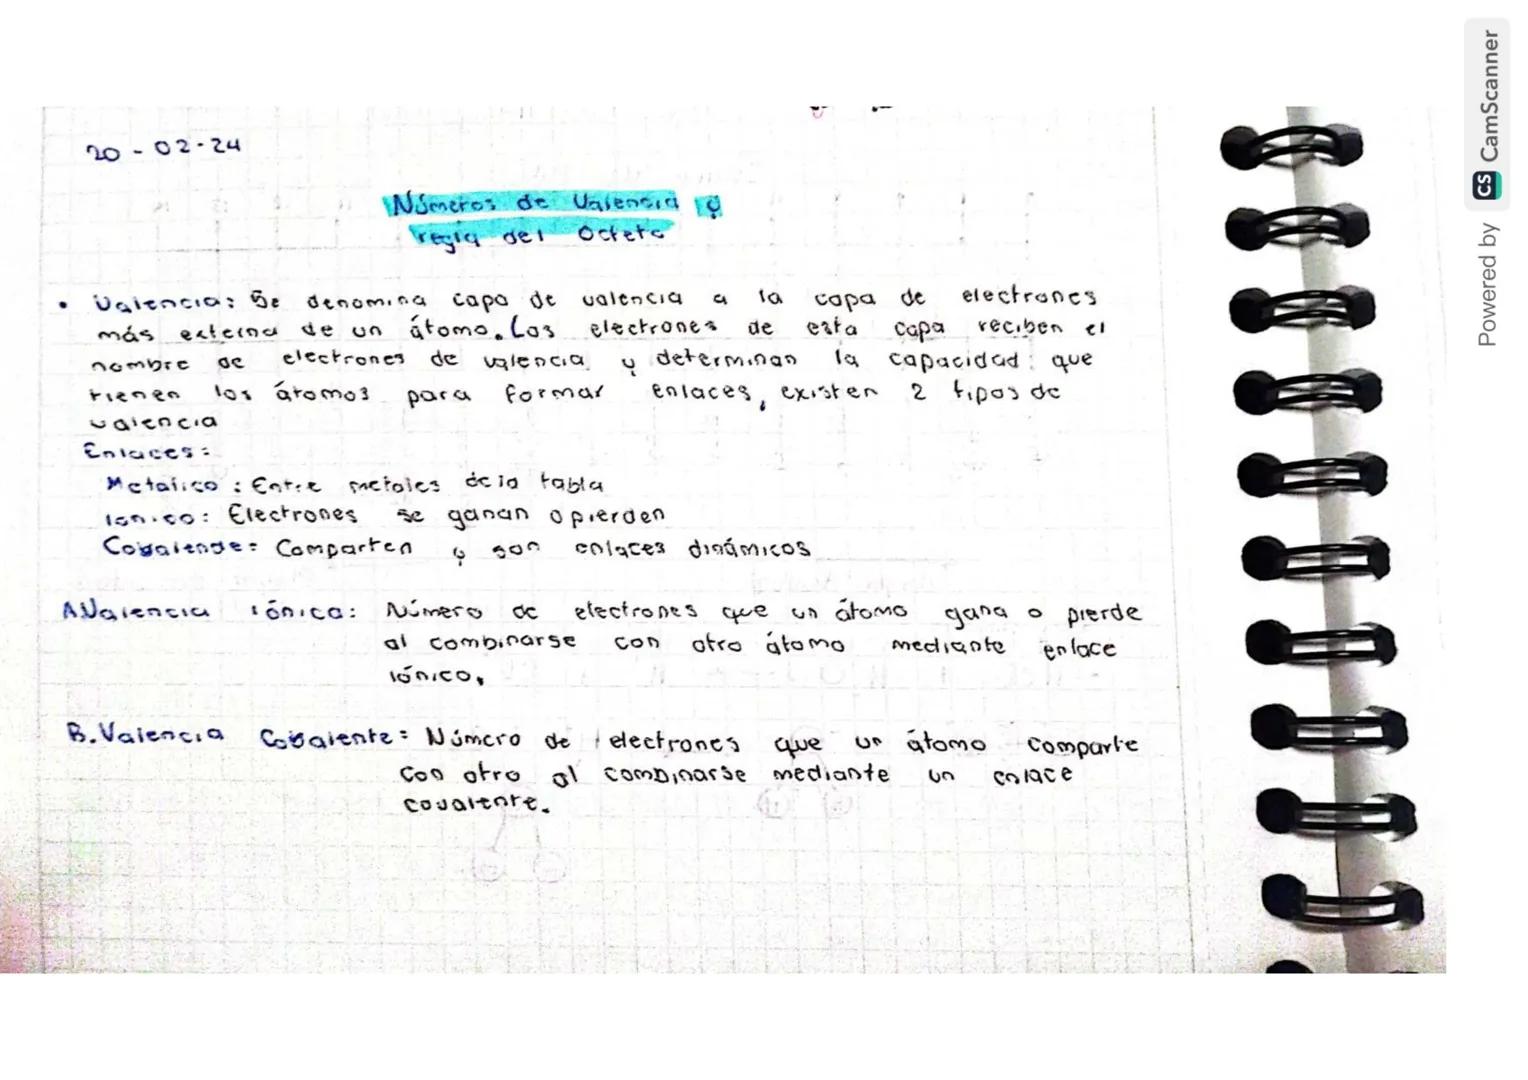 20-02-24
Números de Valencia y
regla del Octeto
• Valencia: Se denomina capa de valencia a la capa de electrones
más externa de un átomo. Los electrones de esta capa reciben el
nombre de electrones de valencia y determinan la capacidad que
tienen los átomos para formar enlaces, existen 2 tipos de
valencia
Enlaces:
Metálico: Entre metales de la tabla
Iónico: Electrones se ganan o pierden
Covalende: Comparten y son enlaces dinámicos
A.Valencia iónica: Número de electrones que un átomo gana o pierde
al combinarse con otro átomo mediante enlace
iónico,
B.Valencia Covalente: Número de electrones que un átomo comparte
con otro al combinarse mediante un enlace
covalente.
Powered by CS CamScanner